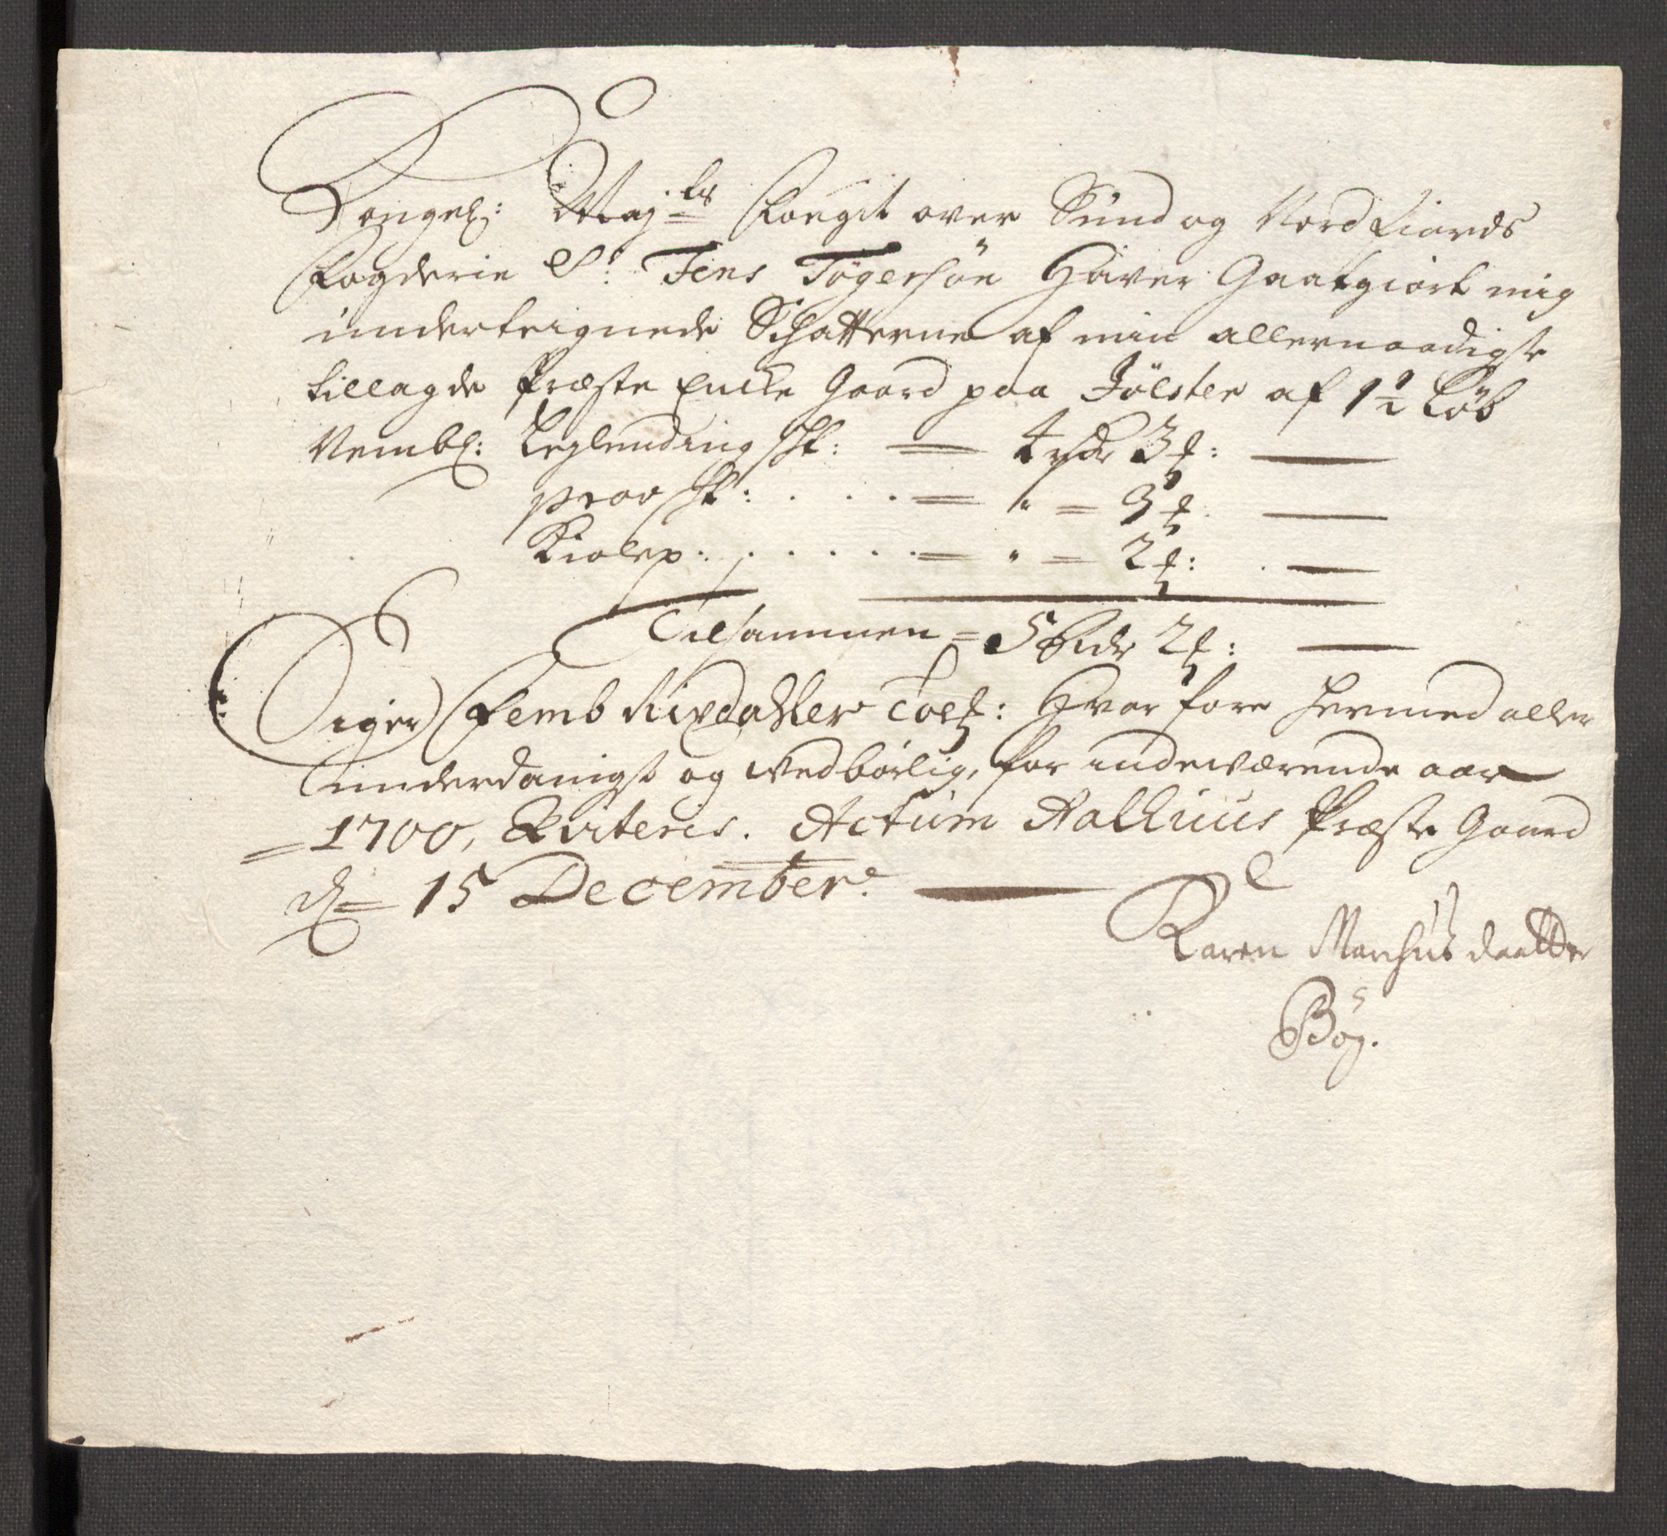 Kongel: Maj:ts Fougit over Sund og Nordfiords
Fogderie Sr. Jens Tøgersøn Haver Gaatgiort mig
underteignede Schatterne af min allernaadigste
tillagde Præste Encke Gaard paa Jølster af 1½ Løb
Nembl: Leylendingsk: = 4 rdr 3 #: —
prov sk: . . . . = " = 3 #. —
Kiolep: . . . . . = " = 2 #: . —
Tilsammen = 5 Rdr 2 #: —
Siger Femb Rixdaller Toe #: Hvor fore hermed aller
underdanigst og vedbørlig, for indeværende aar
= 1700, Qviteris. Actum Præste Gaard
d = 15 Decembere. —
Karen Marchus daatter
Bøg.